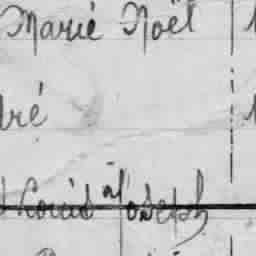 Marié Noël
dré
Louis Joseph